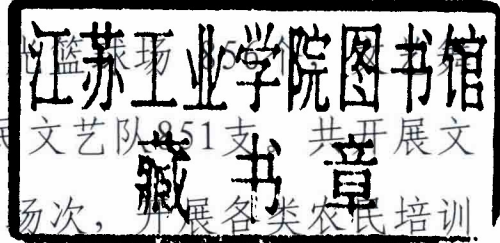 江苏工业学院图书馆
藏书章
篮球场 856个
文艺队851支，共开展文
场次，开展各类农民培训